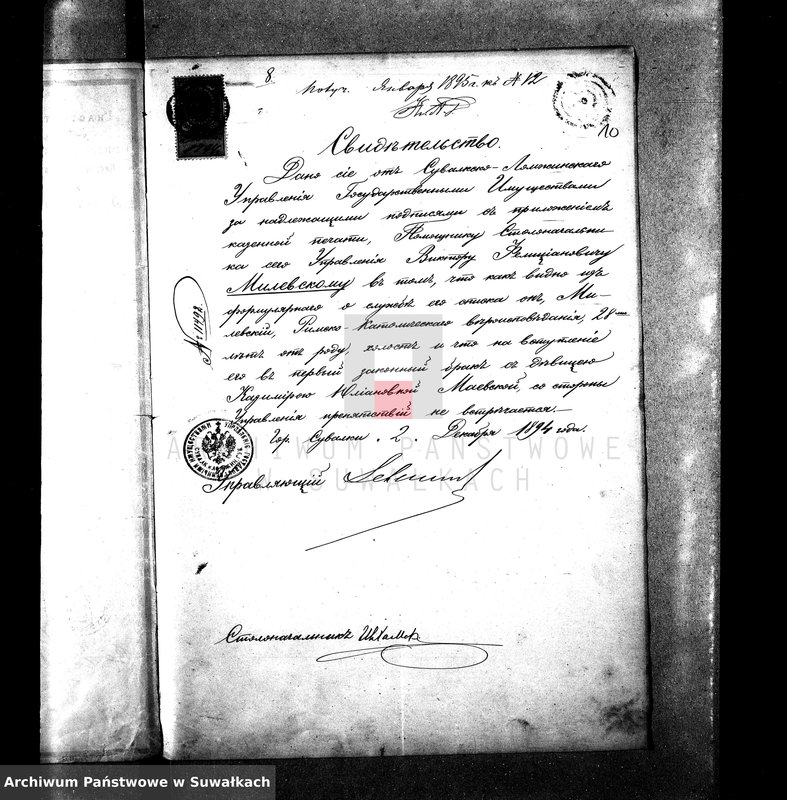 8
Получ. Января 1895 г. къ № 12
10
Свидѣтельство.
Дано сіе отъ Сувалкско-Ломжинскаго
Управленія Государственными Имуществами
за надлежащими подписями съ приложеніемъ
казенной печати, Помощнику Столоначальни
ка сего Управленія Виктору Фелиціановичу
Милевскому въ томъ, что какъ видно изъ
формулярнаго о службѣ его списка онъ, Ми-
левскій, Римско-Католическаго вѣроисповѣданія, 28 ми
лѣтъ отъ роду, холостъ и что на вступленіе
его въ первый законный бракъ съ дѣвицею
Казимірою Юліановной Маевской, со стороны
Управленія препятствій не встрѣчается.—
Гор. Сувалки. 2. Декабря 1894 года.
№ 11492
Управляющій
Столоначальникъ
ARCHIWUM PAŃSTWOWE
W SUWAŁKACH
Archiwum Państwowe w Suwałkach